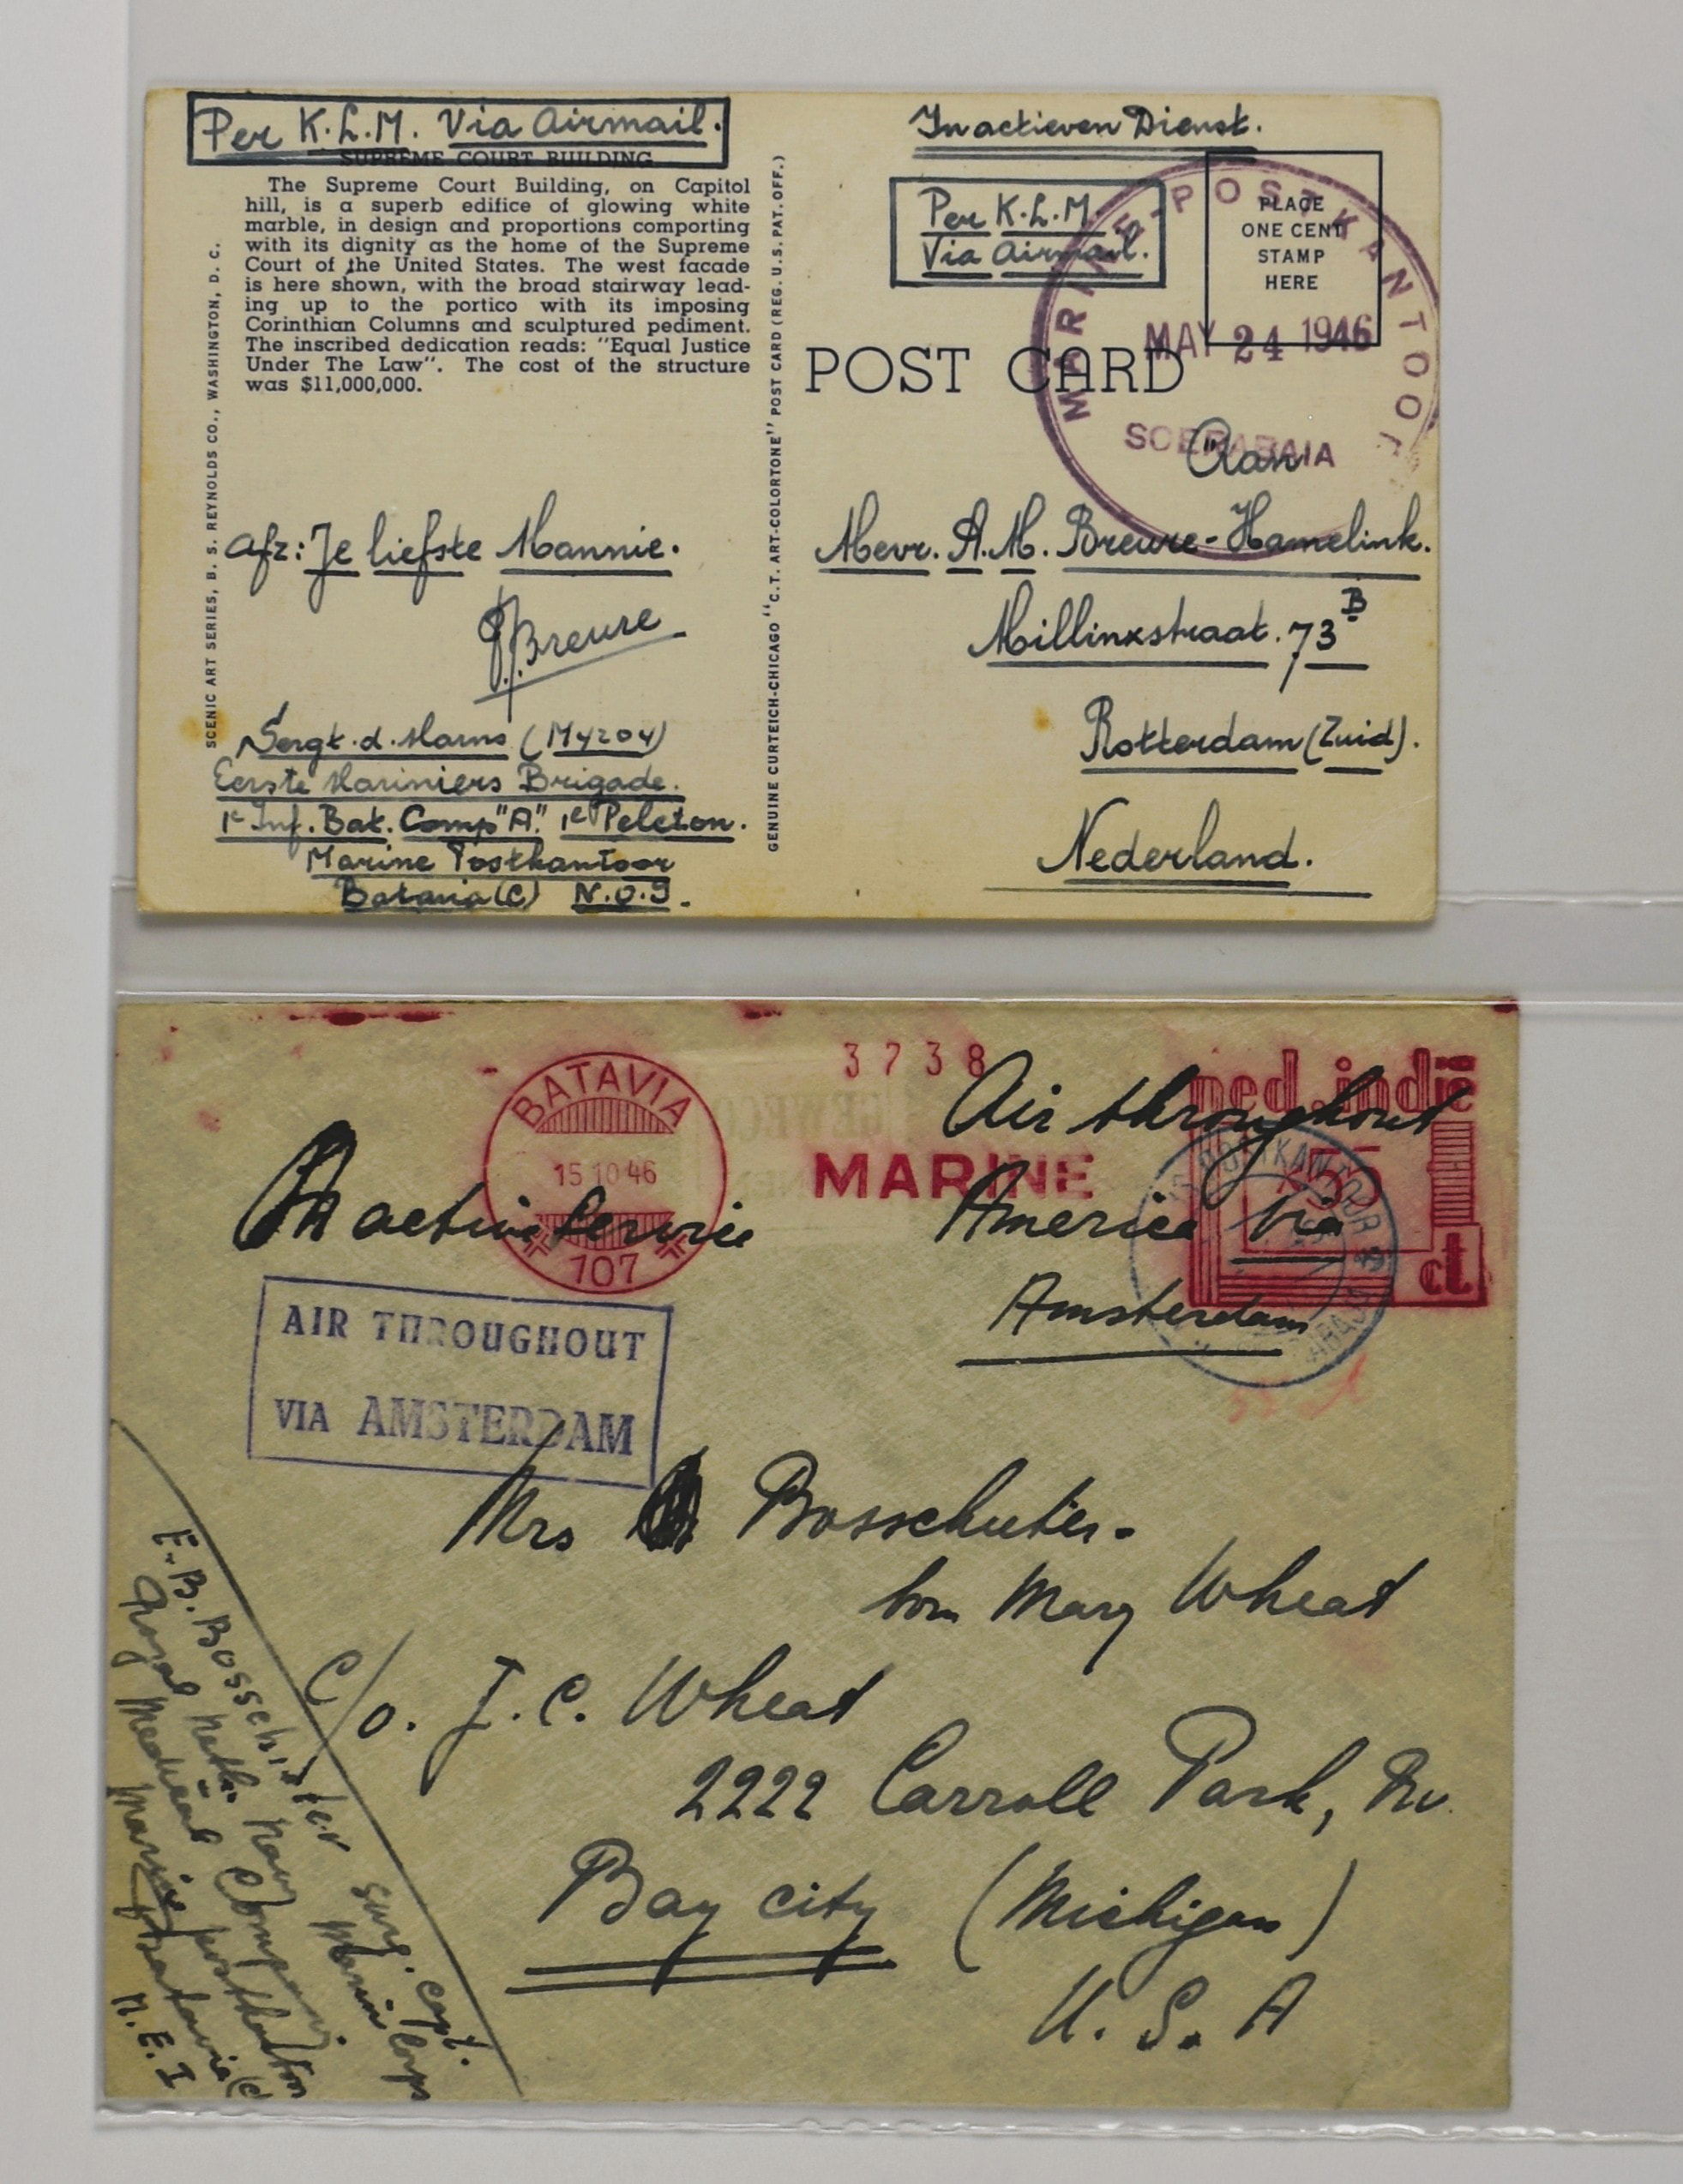 Per K.L.M. Via Airmail.
SUPREME COURT BUILDING
The Supreme Court Building, on Capitol
hill, is a superb edifice of glowing white
marble, in design and proportions comporting
with its dignity as the home of the Supreme
Court of the United States. The west facade
is here shown, with the broad stairway lead-
ing up to the portico with its imposing
Corinthian Columns and sculptured pediment.
The inscribed dedication reads: "Equal Justice
Under The Law". The cost of the structure
was $11,000,000.
SCENIC ART SERIES, B. S. REYNOLDS CO., WASHINGTON, D. C.
Afz: Je liefste Mannie.
Breure
Sergt. d. Marns (My204)
Eerste Mariniers Brigade.
1e Inf. Bat. Comp "A". 1e Peleton.
Marine Postkantoor
Batavia (C) N.O.I.
GENUINE CURTEICH-CHICAGO "C.T. ART-COLORTONE" POST CARD (REG. U.S. PAT. OFF.)
In actieven Dienst.
Per K.L.M.
Via Airmail.
PLACE
ONE CENT
STAMP
HERE
MARINE-POSTKANTOOR
MAY 24 1946
SOERABAIA
POST CARD
Aan
Mevr. A.M. Breure-Hamelink.
Millinxstraat. 73B
Rotterdam (Zuid).
Nederland.
BATAVIA
15 10 46
107
3738
MARINE
ned. indië
55
ct
POSTKANTOOR
On active Service
Air throughout
America Via
Amsterdam
AIR THROUGHOUT
VIA AMSTERDAM
Mrs Bosschieter.
born Mary Wheat
C/o. J. C. Wheat
2222 Carroll Park, Nv.
Bay city (Michigan)
U. S. A
E. B. Bosschieter Surg. Capt.
Royal Neth. Navy Marine Corps
Medical Company.
Marine postkantoor
Batavia (C)
N. E. I